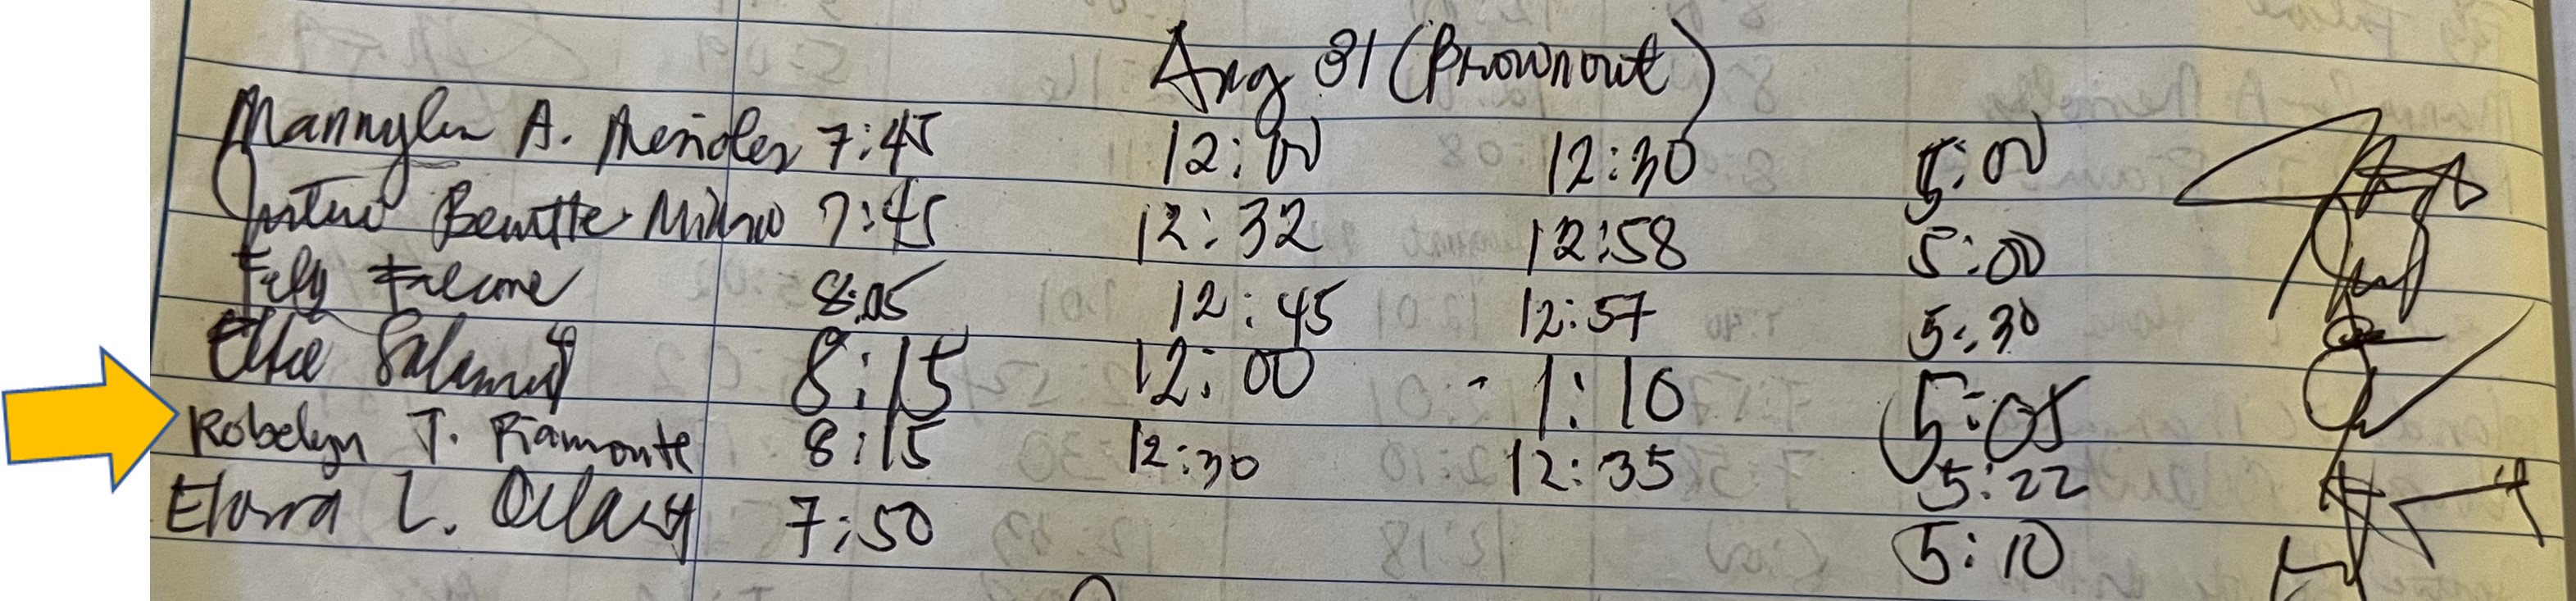 Aug 31 (Brownout)
Mannylen A. Mendoles 7:45 12:00 12:30 5:00
7:45 12:32 12:58 5:00
Fely Falcone 8:05 12:45 12:57 5:30
8:15 12:00 - 1:10 5:05
Robelyn T. Piamonte 8:15 12:30 12:35 5:22
L. 7:50 5:10